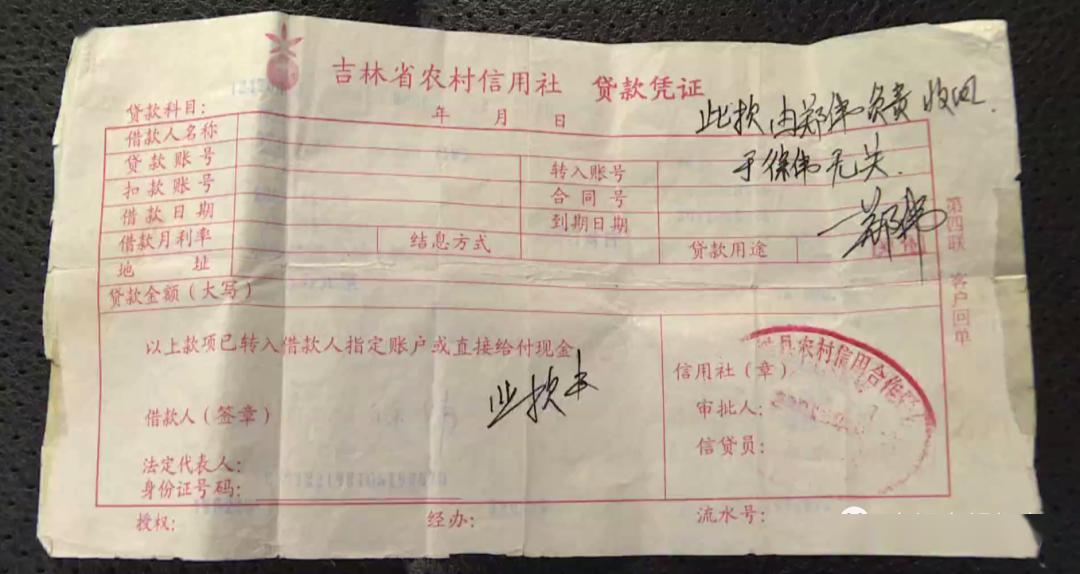 吉林省农村信用社 贷款凭证
贷款科目:
年 月 日
此款由郑伟负责收回.
于徐伟无关.
郑伟
借款人名称
贷款账号
转入账号
扣款账号
合同号
借款日期
到期日期
借款月利率
结息方式
贷款用途
地 址
贷款金额(大写)
第四联 客户回单
以上款项已转入借款人指定账户或直接给付现金
此款
借款人(签章)
法定代表人:
身份证号码:
信用社(章)
审批人:
信贷员:
县农村信用合作
授权:
经办:
流水号: